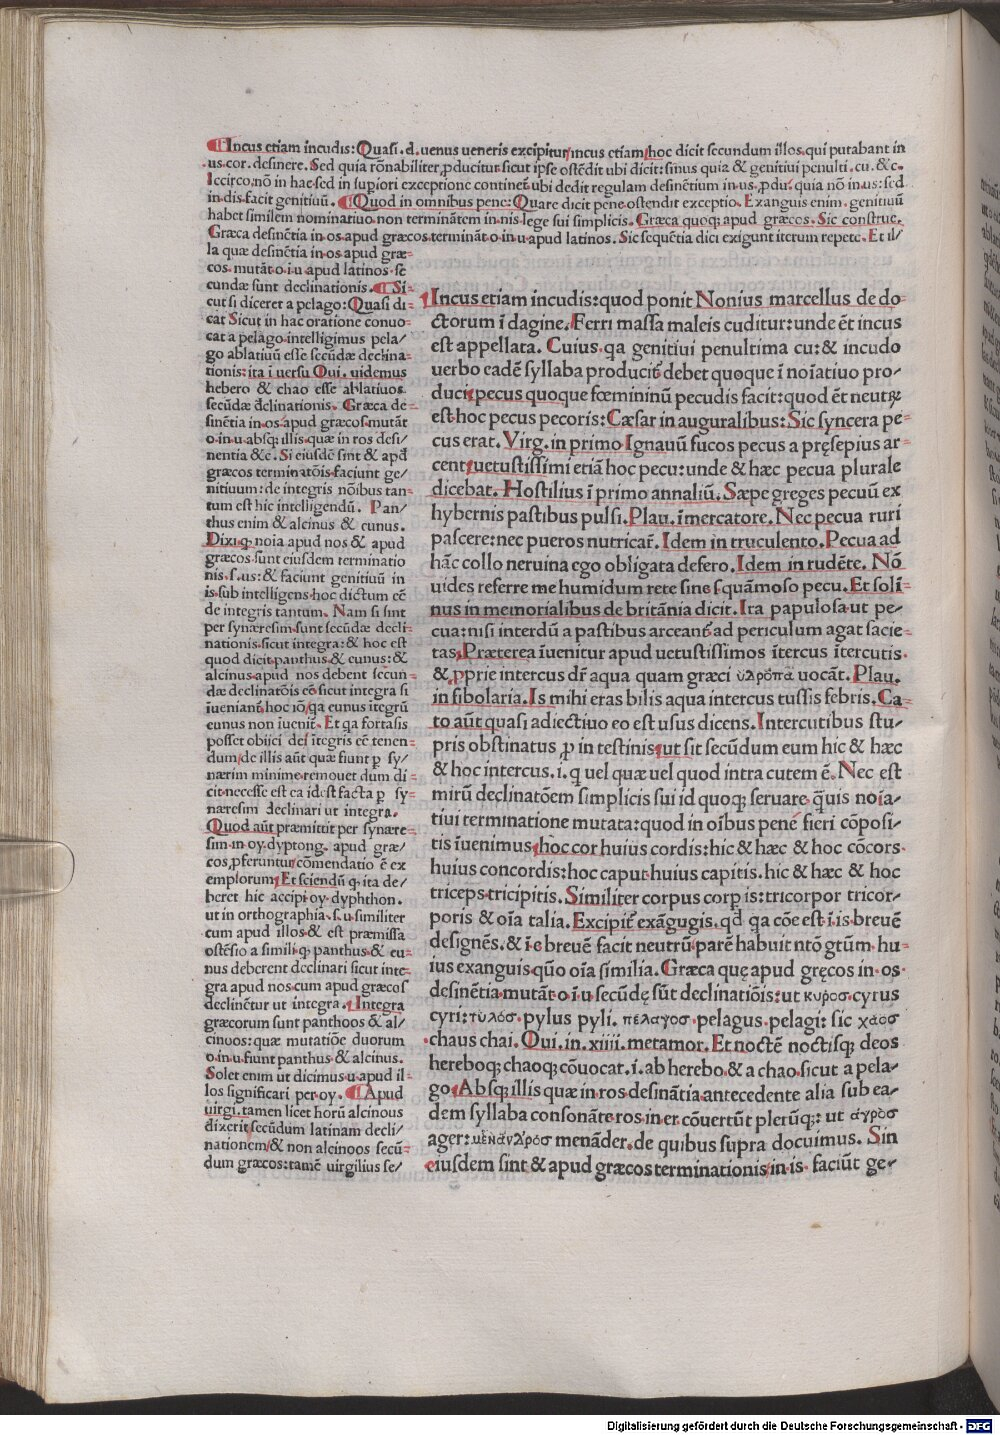 Incus etiam incudis: Quasi .d. uenus ueneris excipitur incus etiam hoc dicit secundum illos qui putabant in
us.cor. desinere. Sed quia rōnabiliter ꝓducitur sicut ipse ostēdit ubi dicit: sinus quia & genitiui penulti. cu. &c.
Iccirco nō in hac sed in supiori exceptione continet ubi dedit regulam desinētium in us. ꝓdu. quia nō in us: sed
in dis facit genitiuū. Quod in omnibus pene: Quare dicit pene ostendit exceptio. Exanguis enim. genitiuū
habet similem nominatiuo non terminātem in nis lege sui simplicis. Græca quoqꝫ apud græcos. Sic construe.
Græca desinētia in os apud græcos termināt o in u apud latinos. Sic sequētia dici exigunt iterum repete. Et il/
la quæ desinētia in os apud græ=
cos mutāt o i u apud latinos se
cundæ sunt declinationis. Si=
cut si diceret a pelago: Quasi di=
cat Sicut in hac oratione conuo=
cat a pelago intelligimus pela/
go ablatiuū esse secūdæ declina=
tionis: ita ī uersu Oui. uidemus
hebero & chao esse ablatiuos
secūdæ declinationis. Græca de=
sinētia in os apud græcos mutāt
o in u absqꝫ illis quæ in ros desi/
nentia &c. Si eiusdē sint & apd̄
græcos terminatōis faciunt ge/
nitiuum: de integris nōibus tan=
tum est hic intelligendū. Pan/
thus enim & alcinus & eunus.
Dixi qꝫ noīa apud nos & apud
græcos sunt eiusdem terminatio
nis .s. us: & faciunt genitiuū in
is sub intelligens hoc dictum eē
de integris tantum. Nam si sint
per synæresim sunt secūdæ decli=
nationis sicut integra: & hoc est
quod dicit panthus & eunus: &
alcinus apud nos debent secun=
dæ declinatōis eē sicut integra si
īueniant hoc iō qa eunus itegrū
eunus non īuenit. Et qa fortasis
posset obiici dei ītegris eē tenen=
dum de illis aūt quæ fiunt ꝑ sy/
nærim minime remouet dum di=
cit necesse est ea id est facta ꝑ sy=
næresim declinari ut integra.
Quod aūt præmittit per synære=
sim in oy dyptong. apud græ/
cos ꝓferuntur cōmendatio ē ex
emplorum Et sciendū qꝫ ita de/
beret hic accipi oy dyphthon.
ut in orthographia .s. u similiter
cum apud illos & est præmissa
ostēsio a simili qꝫ panthus & eu=
nus deberent declinari sicut inte=
gra apud nos cum apud græcos
declinētur ut integra. Integra
græcorum sunt panthoos & al/
cinoos: quæ mutatiōe duorum
o in u fiunt panthus & alcinus.
Solet enim ut dicimus u apud il=
los significari per oy. Apud
uirgi. tamen licet horū alcinous
dixerit secūdum latinam decli/
nationem & non alcinoos secū=
dum græcos: tamē uirgilius se/
Incus etiam incudis: quod ponit Nonius marcellus de do=
ctorum ī dagine. Ferri massa maleis cuditur: unde ēt incus
est appellata. Cuius qa genitiui penultima cu: & incudo
uerbo eadē syllaba producit debet quoque ī noīatiuo pro/
duci pecus quoque fœmininū pecudis facit: quod ēt neutrꝫ
est hoc pecus pecoris: Cæsar in auguralibus: Sic syncera pe=
cus erat. Virg. in primo Ignauū fucos pecus a pręsepius ar=
cent uetustissimi etiā hoc pecu: unde & hæc pecua plurale
dicebat. Hostilius ī primo annaliū. Sæpe greges pecuū ex
hybernis pastibus pulsi. Plau. īmercatore. Nec pecua ruri
pascere: nec pueros nutricat. Idem in truculento. Pecua ad
hāc collo neruina ego obligata defero. Idem in rudēte. Nō
uides referre me humidum rete sine squāmoso pecu. Et soli=
nus in memorialibus de britānia dicit. Ita papulosa ut pe/
cua: nisi interdū a pastibus arceant ad periculum agat sacie=
tas Præterea īuenitur apud uetustissimos ītercus ītercutis.
& ꝓprie intercus dr̄ aqua quam græci υλροπα uocāt. Plau.
in fibolaria. Is mihi eras bilis aqua intercus tussis febris. Ca=
to aūt quasi adiectiuo eo est usus dicens. Intercutibus stu/
pris obstinatus ꝑ in testinis ut sit secūdum eum hic & hæc
& hoc intercus. i. q uel quæ uel quod intra cutem ē. Nec est
mirū declinatōem simplicis sui id quoqꝫ seruare quis noīa/
tiui terminatione mutata: quod in oībus pene fieri cōposi/
tis īuenimus hoc cor huius cordis: hic & hæc & hoc cōcors
huius concordis: hoc caput huius capitis. hic & hæc & hoc
triceps tricipitis. Similiter corpus corꝑis: tricorpor tricor/
poris & oīa talia. Excipit exāgugis. qd̄ qa cōe est ī is breuē
designēs. & i e breuē facit neutrū parē habuit ntō gtūm. hu=
ius exanguis quō oīa similia. Græca quę apud gręcos in os
desinētia mutāt o ī u secūdę sūt declinatiōis: ut κυροσ cyrus
cyri: τυλοσ pylus pyli. πελαγοσ pelagus pelagi: sic χαοσ
chaus chai. Oui. in. xiiii. metamor. Et noctē noctisqꝫ deos
hereboqꝫ chaoqꝫ cōuocat. i. ab herebo & a chao sicut a pela/
go Absqꝫ illis quæ in ros desinātia antecedente alia sub ea/
dem syllaba consonāte ros in er cōuertūt plerūqꝫ: ut αγροσ
ager: μεναναροσ menāder. de quibus supra docuimus. Sin
eiusdem sint & apud græcos terminationis in is faciūt ge/
Digitalisierung gefördert durch die Deutsche Forschungsgemeinschaft - DFG